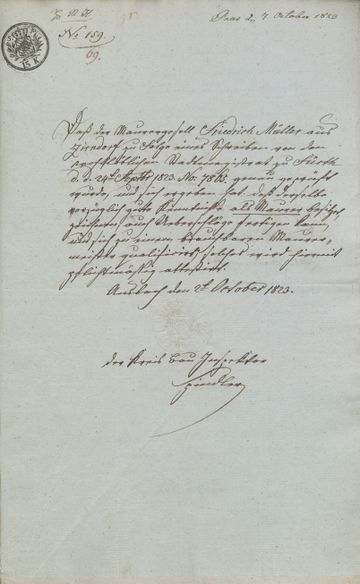 Praes. d. 7. October 1823
No 159.
69.
Daß der Maurergesell Friedrich Müller aus
Zirndorf zu Folge eines Schreiben von dem
Stadtmagistrat zu Fürth
d. d. 24t Septbr 1823. No. geprüft
wurde, und sich ergeben hat daß derselbe
vorzüglich gute Kenntniße als Maurer besitzt,
auch Ueberschläge fertigen kann,
und sich zu einem brauchbaren Maurer-
meister qualifizirt, solches wird hiermit
pflichtmäßig attestirt.
Ansbach den 2t October 1823.
der Kreis Bau Inspektor